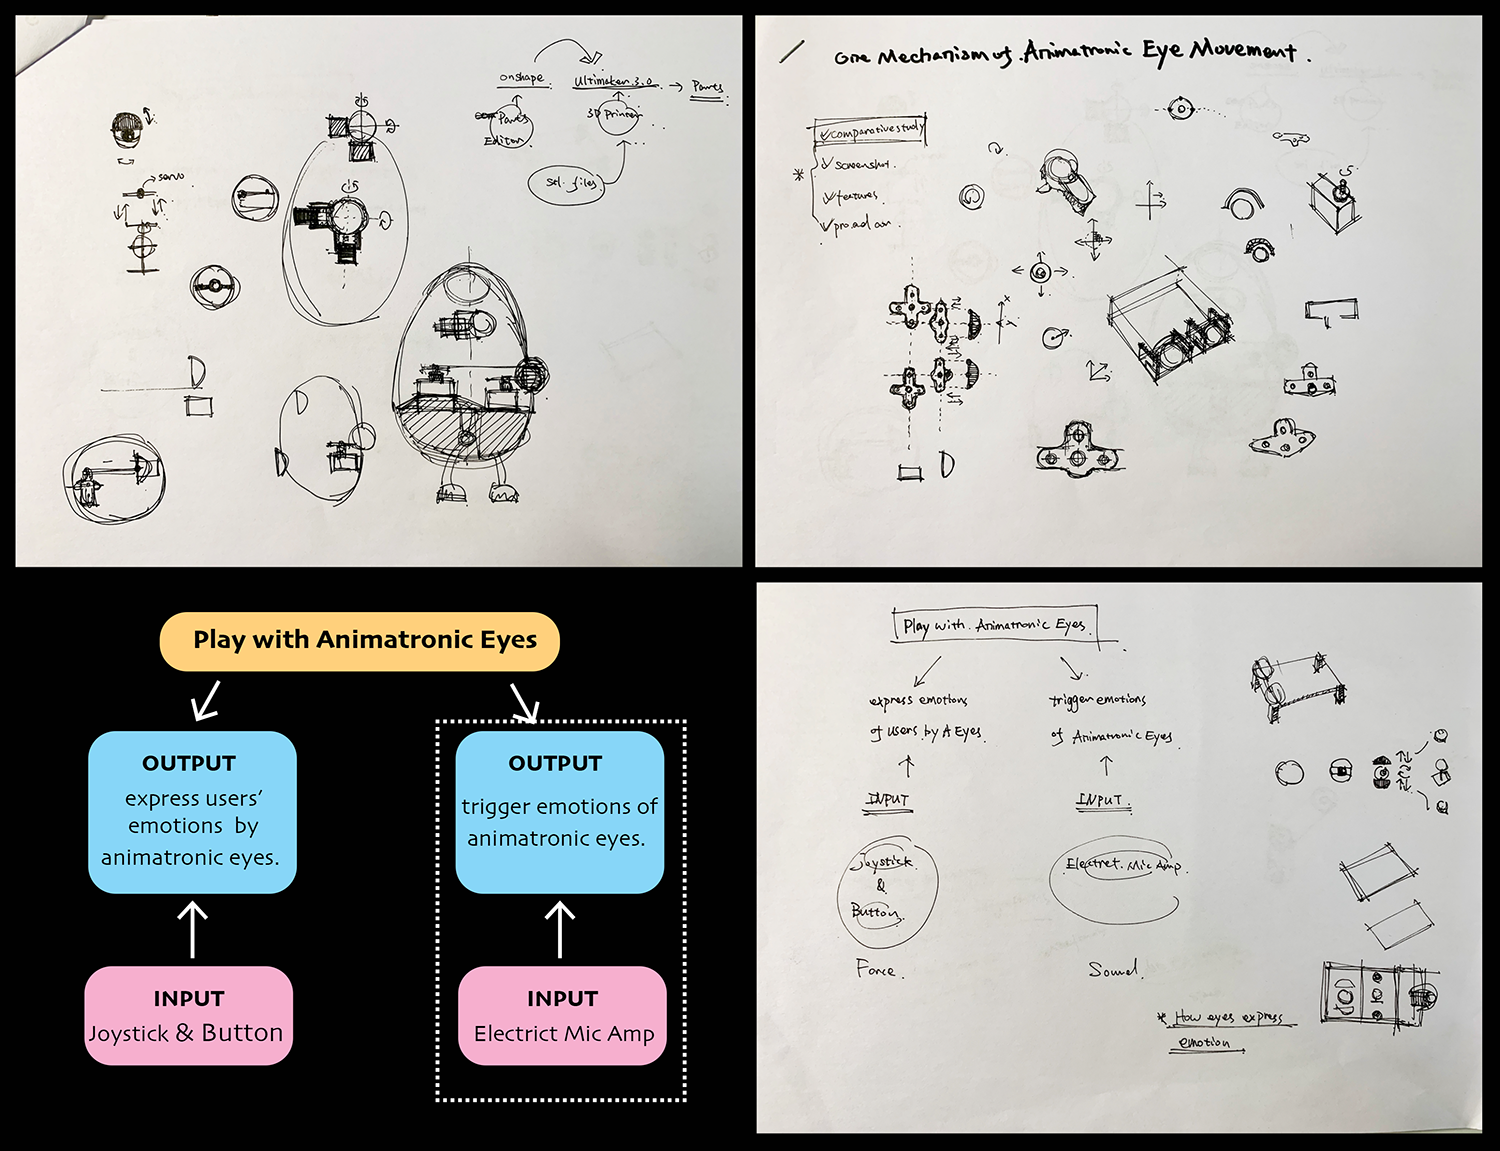 onshape
Ultimaker 3.0
Parts
Parts
Editor
3D Printer
stl. files
servo
One Mechanism of Animatronic Eye Movement.
comparative study
screenshot.
features.
Play with Animatronic Eyes
OUTPUT
express users'
emotions by
animatronic eyes.
INPUT
Joystick & Button
OUTPUT
trigger emotions of
animatronic eyes.
INPUT
Electrict Mic Amp
Play with Animatronic Eyes.
express emotions
of users by A Eyes.
INPUT
Joystick
&
Button
Force.
trigger emotions
of Animatronic Eyes.
INPUT.
Electret Mic Amp.
Sound.
* How eyes express
emotion